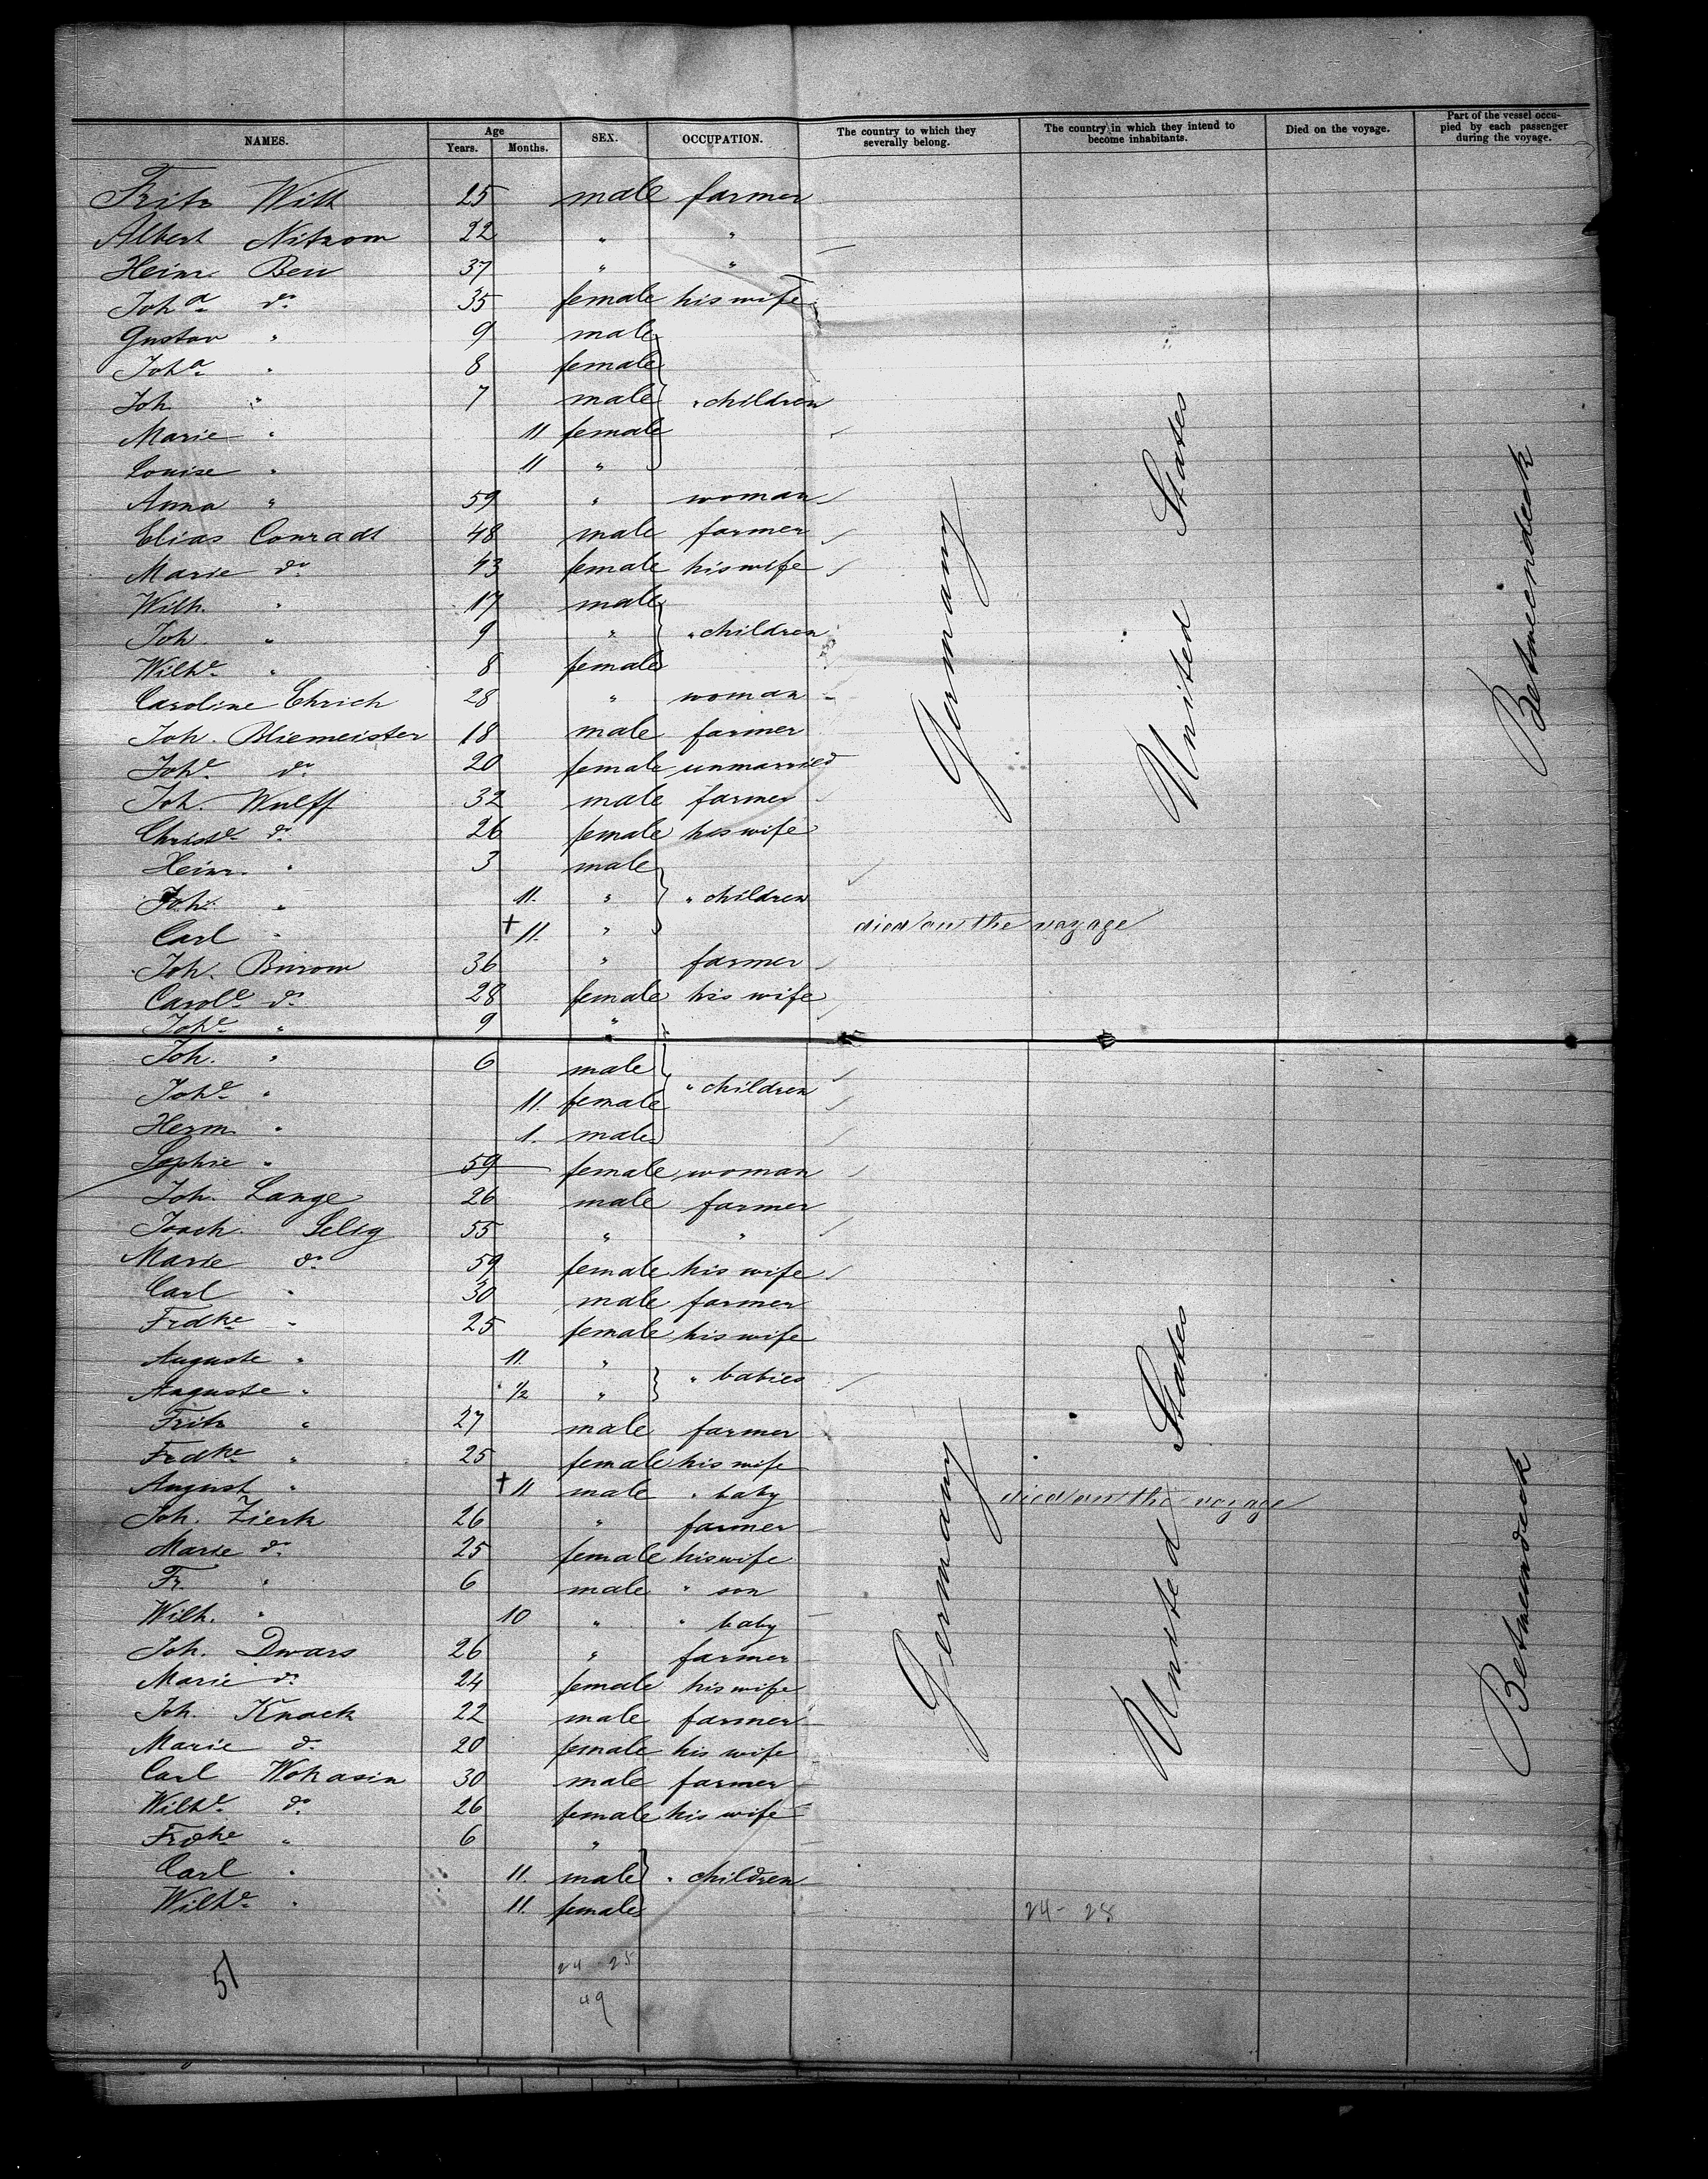 NAMES. Age Years. Months. SEX. OCCUPATION. The country to which they severally belong. The country in which they intend to become inhabitants. Died on the voyage. Part of the vessel occupied by each passenger during the voyage.
Fritz Witt 25 male farmer
Albert Nitzow 22 " "
Heinr. 37 " "
Joha do 35 female his wife
Gustav " 9 male
Joha " 8 female
Joh. " 7 male " children
Marie " 11 female
Louise " 11 "
Anna " 59 " woman
Elias Conradt 48 male farmer
Marie do 43 female his wife
Wilh. " 17 male
Joh. " 9 " " children
Wilhe " 8 female
Caroline Ehrich 28 " woman
Joh. Bliemeister 18 male farmer
Johe do 20 female unmarried
Joh. Wulff 32 male farmer
Christe do 26 female his wife
Heinr. " 3 male
Joh. " 11. " " children
Carl " + 11. " died on the voyage
Joh. Burow 36 " farmer
Carole do 28 female his wife
Johe " 9 "
Joh. " 6 male
Johe " 11. female " children
Herm. " 1. male
Sophie " 59 female woman
Joh. Lange 26 male farmer
Joach. Selig 55 " "
Marie do 59 female his wife
Carl " 30 male farmer
Frdke " 25 female his wife
Auguste " 11. "
Auguste " 1/2 " " babies
Fritz " 27 male farmer
Frdke " 25 female his wife
August " + 11 male " baby died on the voyage
Joh. Zierk 26 " farmer
Marie do 25 female his wife
Fr. " 6 male " son
Wilh. " 10 " " baby
Joh. Dwars 26 " farmer
Marie do 24 female his wife
Joh. Knack 22 male farmer
Marie do 20 female his wife
Carl Wokasin 30 male farmer
Wilhe do 26 female his wife
Frdke " 6 "
Carl " 11. male " children
Wilhe " 11. female
Germany United States Betweendeck
Germany United States Betweendeck
24 - 28
51
24 25
49